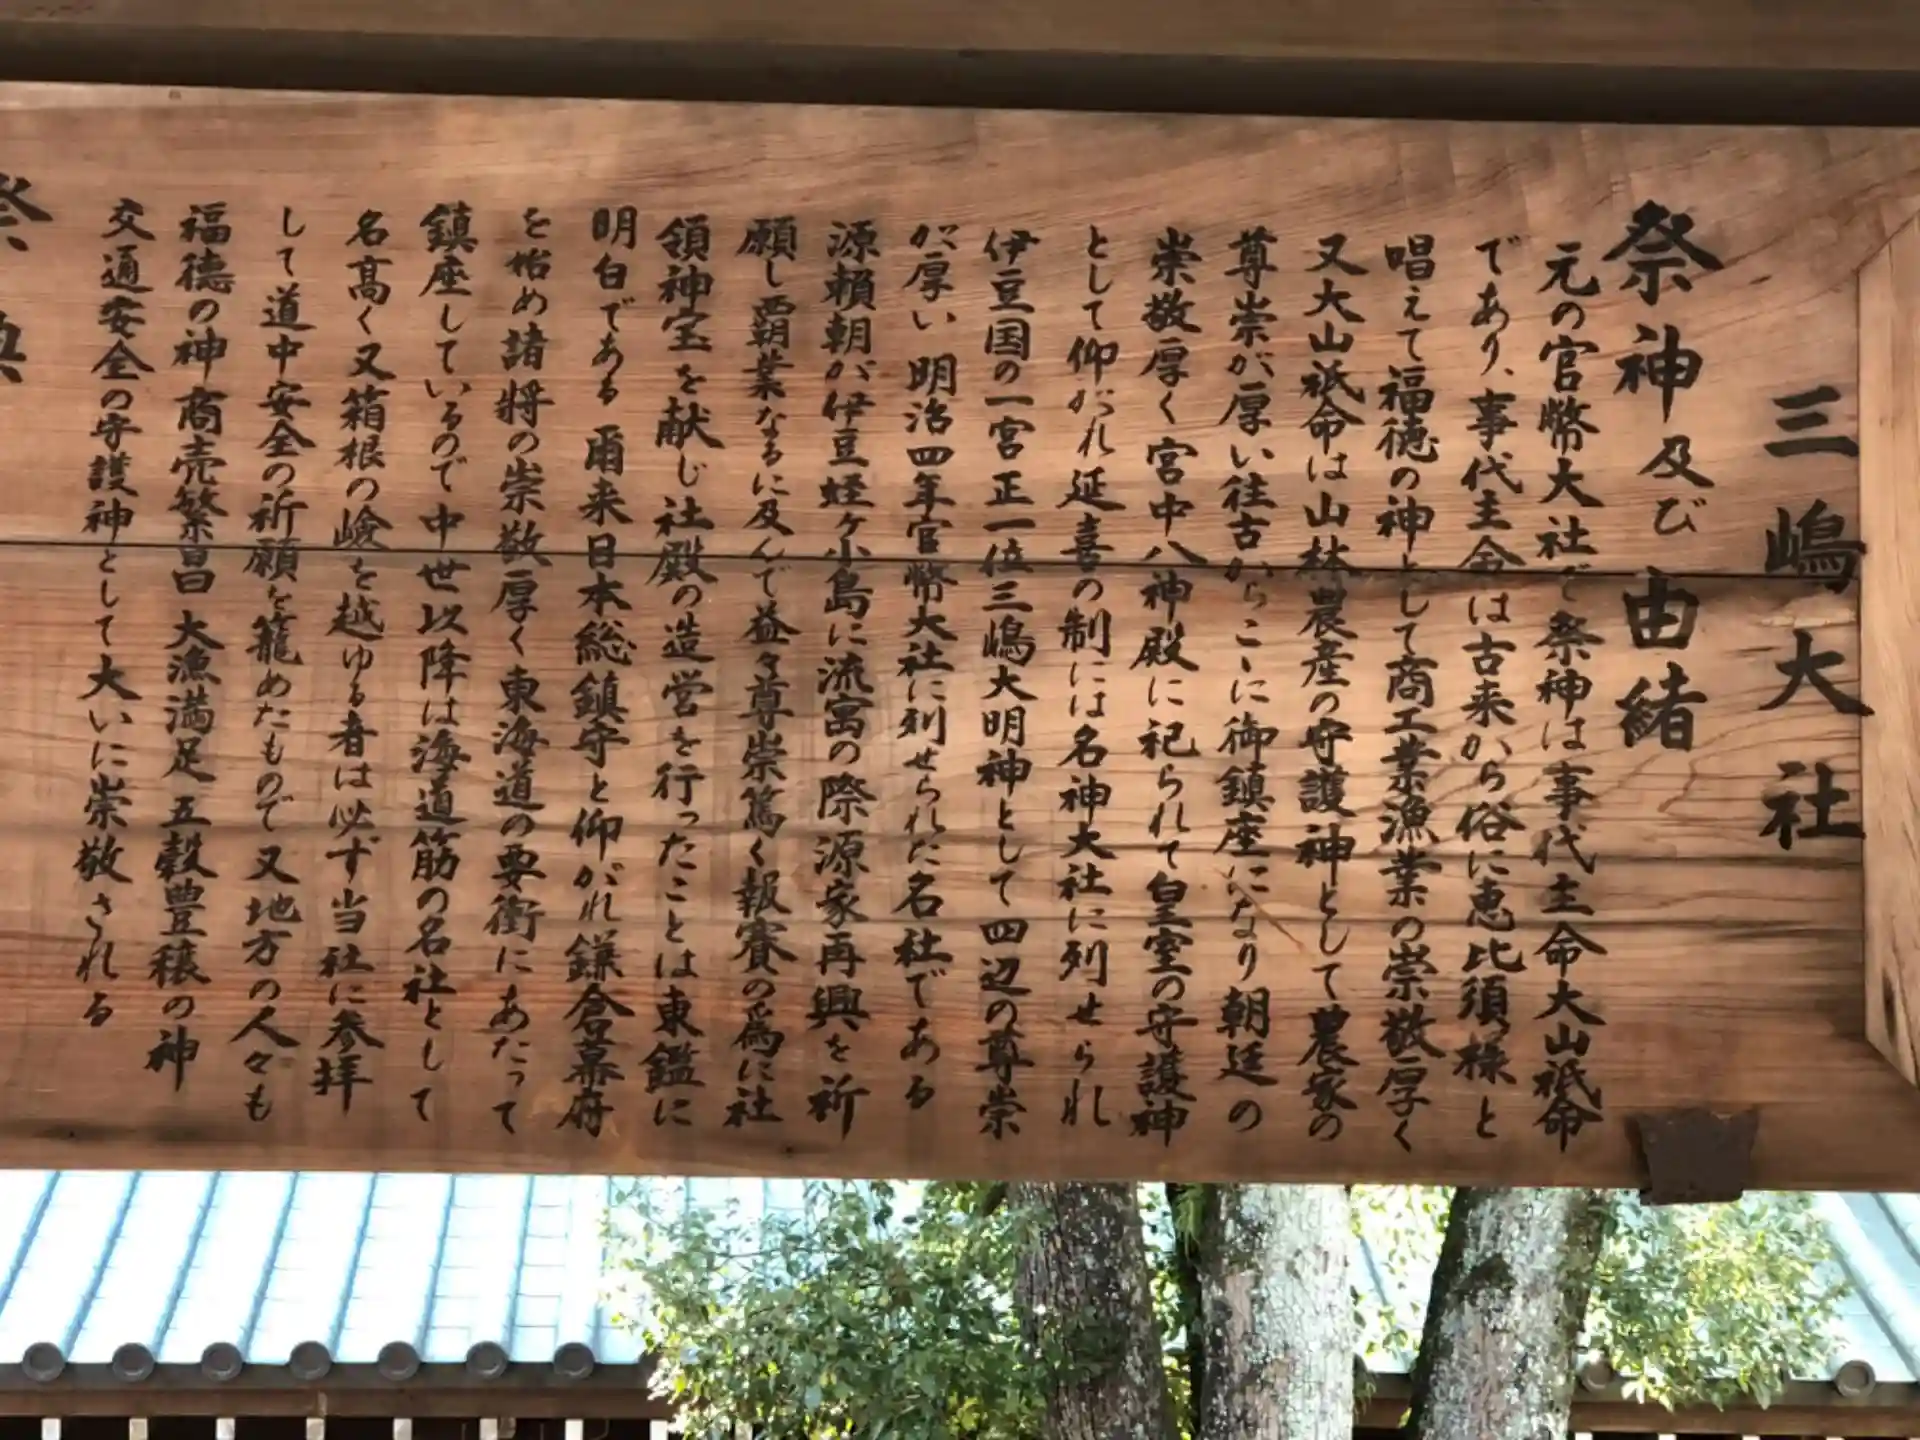 三嶋大社
祭神及び由緒
元の官幣大社で祭神は事代主命大山祇命
であり、事代主命は古来から俗に恵比須様と
唱えて福徳の神として商工業漁業の崇敬厚く
又大山祇命は山林農産の守護神として農家の
尊崇が厚い往古からこゝに御鎮座になり朝廷の
崇敬厚く宮中八神殿に祀られて皇室の守護神
として仰がれ延喜の制には名神大社に列せられ
伊豆国の一宮正一位三嶋大明神として四辺の尊崇
が厚い 明治四年官幣大社に列せられた名社である
源頼朝が伊豆蛭ヶ小島に流寓の際源家再興を祈
願し覇業なるに及んで益々尊崇篤く報賽の為に社
領神宝を献じ社殿の造営を行ったことは東鑑に
明白である 爾来日本総鎮守と仰がれ鎌倉幕府
を始め諸将の崇敬厚く東海道の要衝にあたって
鎮座しているので中世以降は海道筋の名社として
名高く又箱根の嶮を越ゆる者は必ず当社に参拝
して道中安全の祈願を籠めたもので又地方の人々も
福徳の神 商売繁昌 大漁満足 五穀豊穣の神
交通安全の守護神として大いに崇敬される
祭典